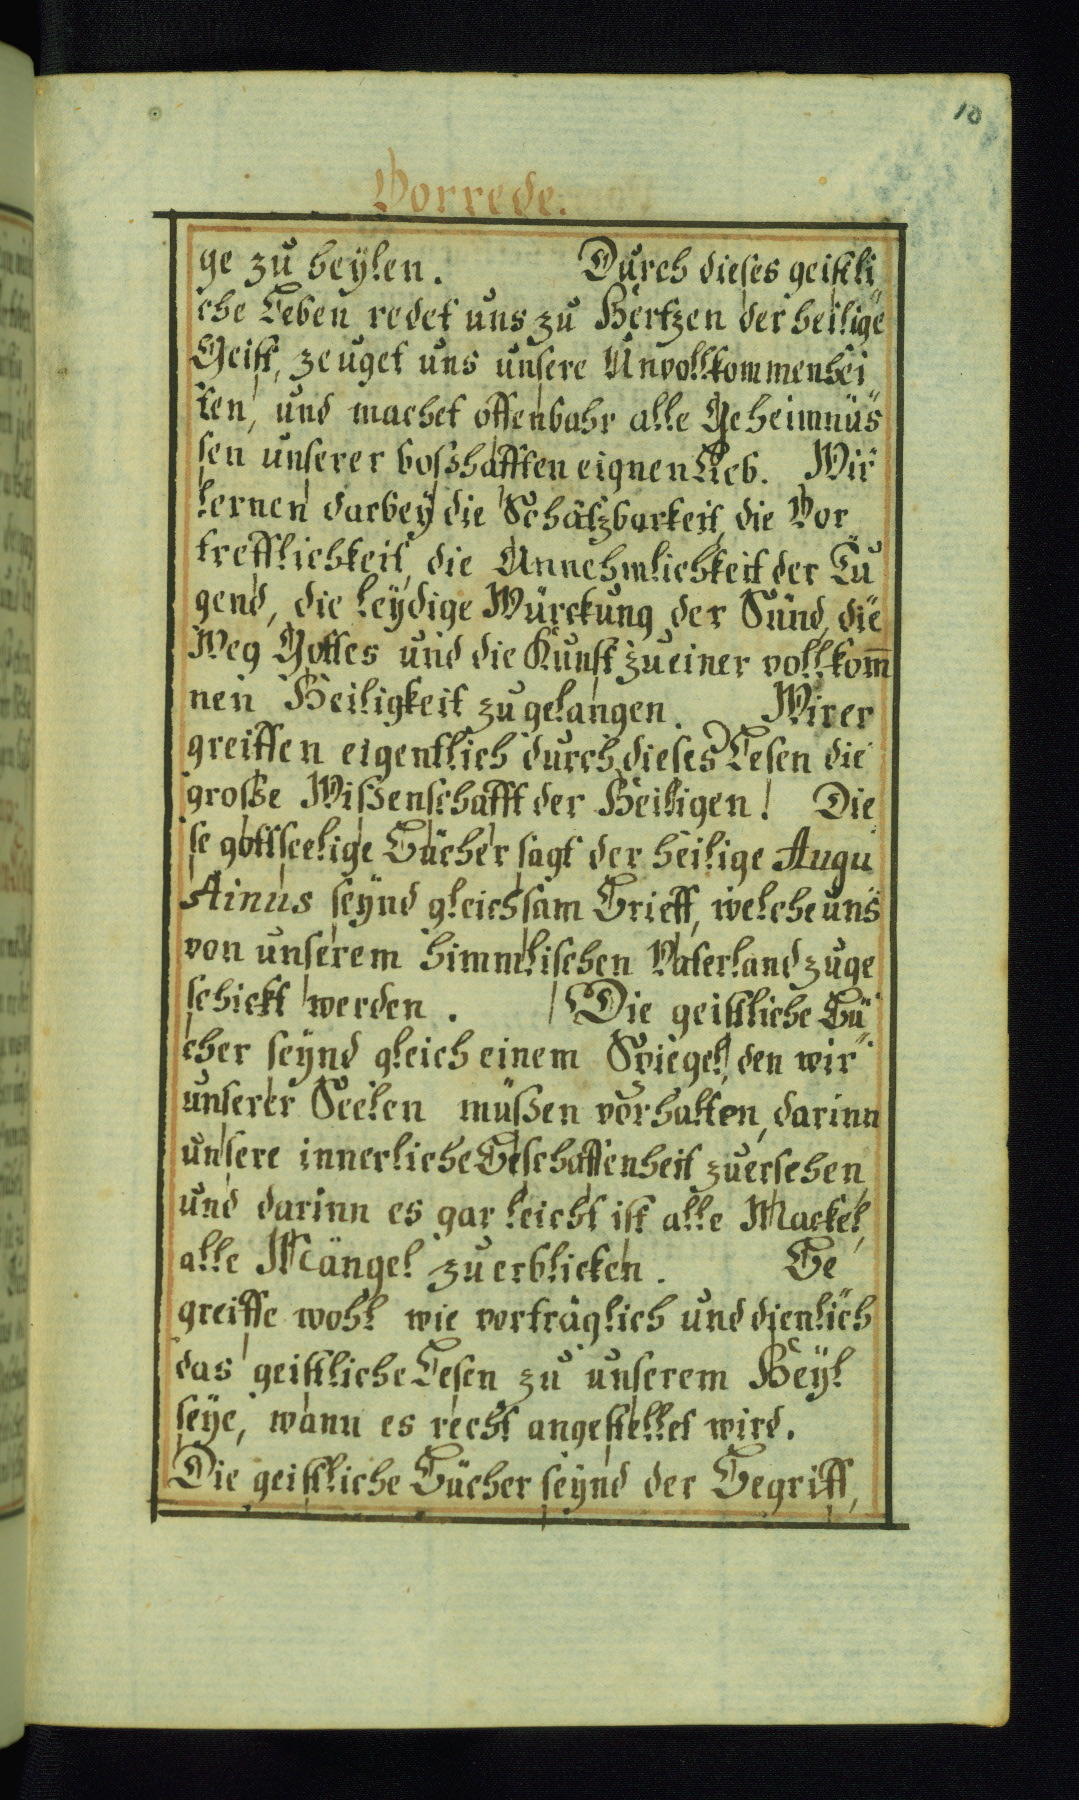 10
Vorrede.
ge zu heÿlen. Durch dieses geistli
che Leben redet uns zu Hertzen der heilige
Geist, zeuget uns unsere Unvollkommenhei
ten, und machet offenbahr alle Geheimnüs
sen unserer boßhafften eignen Lieb. Wir
lernen darbeÿ die Schätzbarkeit, die Vor
trefflichkeit, die Annehmlichkeit der Tu
gend, die leÿdige Würckung der Sünd, die
Weg Gottes und die Kunst zu einer vollkom̅
nen Heiligkeit zu gelangen. Wir er
greiffen eigentlich durch dieses Lesen die
große Wißenschafft der Heiligen! Die
se gottseelige Bücher sagt der heilige Augu
stinus seÿnd gleichsam Brieff, welche uns
von unserem himmlischen Vaterland zuge
schickt werden. Die geistliche Bü
cher seÿnd gleich einem Spiegel, den wir
unserer Seelen müßen vorhalten, darinn
unsere innerliche Beschaffenheit zuersehen
und darinn es gar leicht ist alle Mackel,
alle Mängel zu erblicken. Be
greiffe wohl wie vorträglich und dienlich
das geistliche Lesen zu unserem Heÿl
seÿe, wann es recht angestellet wird.
Die geistliche Bücher seÿnd der Begriff,